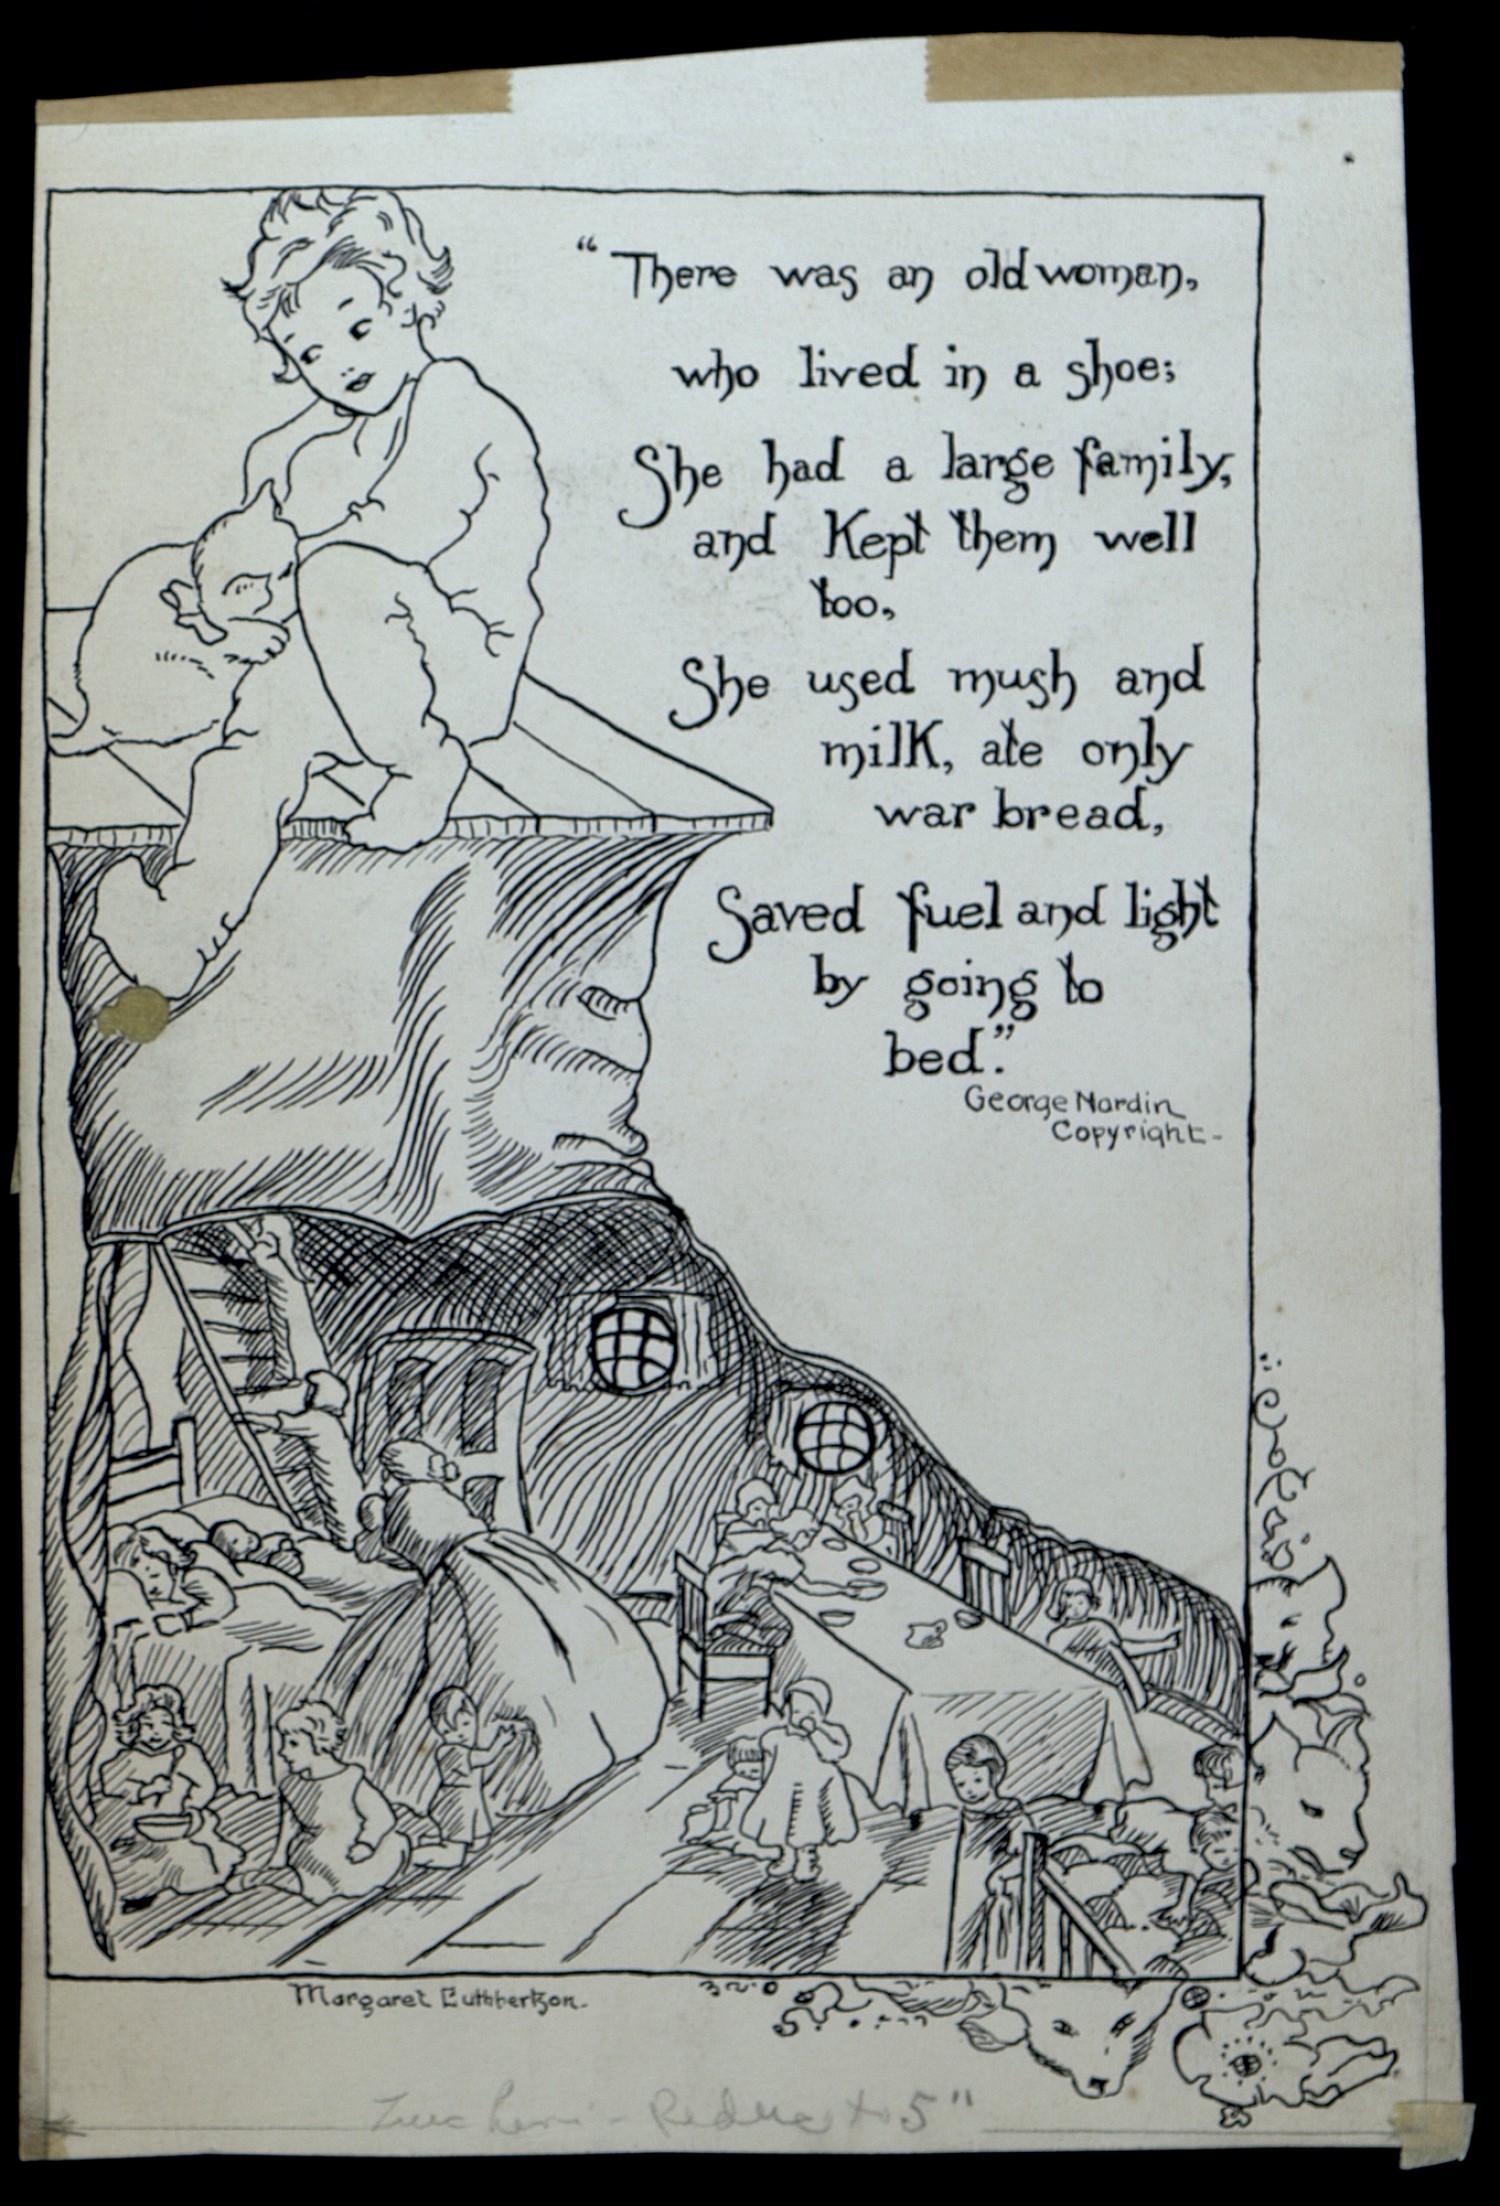 “There was an old woman,
who lived in a shoe;
She had a large family,
and Kept them well
too,
She used mush and
milk, ate only
war bread,
Saved fuel and light
by going to
bed.”
George Nardin
Copyright-
Margaret Cuthbertson.
Reduce to 5"